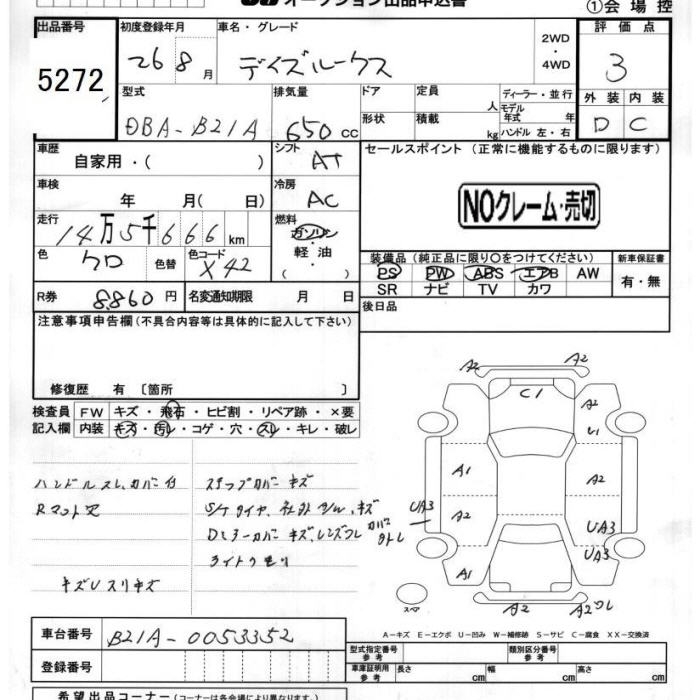 オークション出品申込書
①会場控
出品番号 初度登録年月 車名・グレード 2WD ・ 4WD 評価点
5272 26 8月 デイズルークス 3
型式 排気量 ドア 定員 人 ディーラー・並行 外装 内装
DBA-B21A 650cc 形状 積載 kg モデル年式 年 ハンドル 左・右 D C
車歴 自家用・( ) シフト AT セールスポイント (正常に機能するものに限ります)
車検 年 月( 日) 冷房 AC
NOクレーム・売切
走行 14万5千666km 燃料 ガソリン ・ 軽油 ・
色 クロ 色替 色コード X42
装備品 (純正品に限り○をつけてください) 新車保証書
PS PW ABS エアB AW 有・無
SR ナビ TV カワ
R券 8860円 名変通知期限 月 日 後日品
注意事項申告欄 (不具合内容等は具体的に記入して下さい)
修復歴 有 〔箇所 〕
検査員 FW キズ・飛石・ヒビ割・リペア跡・×要
記入欄 内装 キズ・汚レ・コゲ・穴・スレ・キレ・破レ
ハンドルスレ、カバー付
Rマット欠
キズUスリキズ
ステップカバーキズ
ライトクモリ
A2 A2
C1
A2
U1
A1 A2
A2 UA3 UA3
UA3
A1
A2 A2
スペア
A－キズ E－エクボ U－凹み W－補修跡 S－サビ C－腐食 XX－交換済
車台番号 B21A-0053352
登録番号
型式指定番号 参考 類別区分番号 参考
車庫証明用 参考 長さ cm 幅 cm 高さ cm
希望出品コーナー (コーナーは各会場により異なります。)